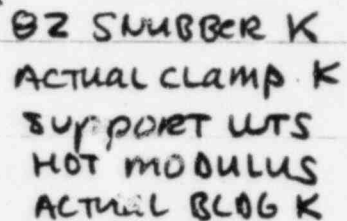 82 SNUBBER K
ACTUAL CLAMP K
SUPPORT WTS
HOT MODULUS
ACTUAL BLDG K